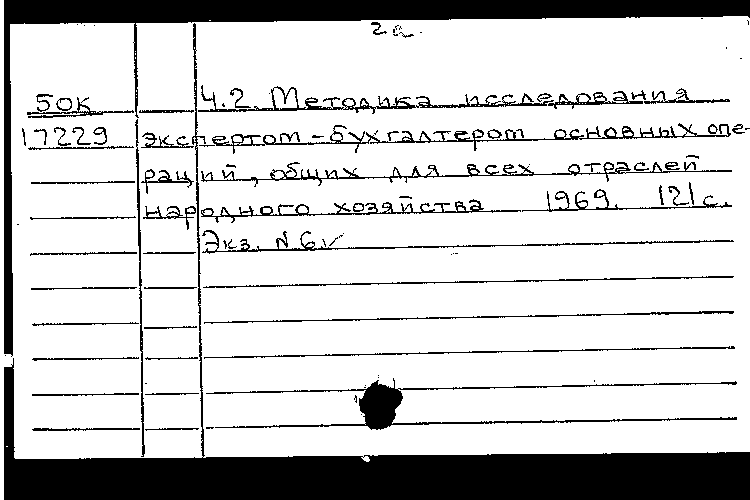 2а.
50к Ч.2. Методика исследования
17229 экспертом-бухгалтером основных опе-
раций, общих для всех отраслей
народного хозяйства 1969. 121с.
Экз. N6✓